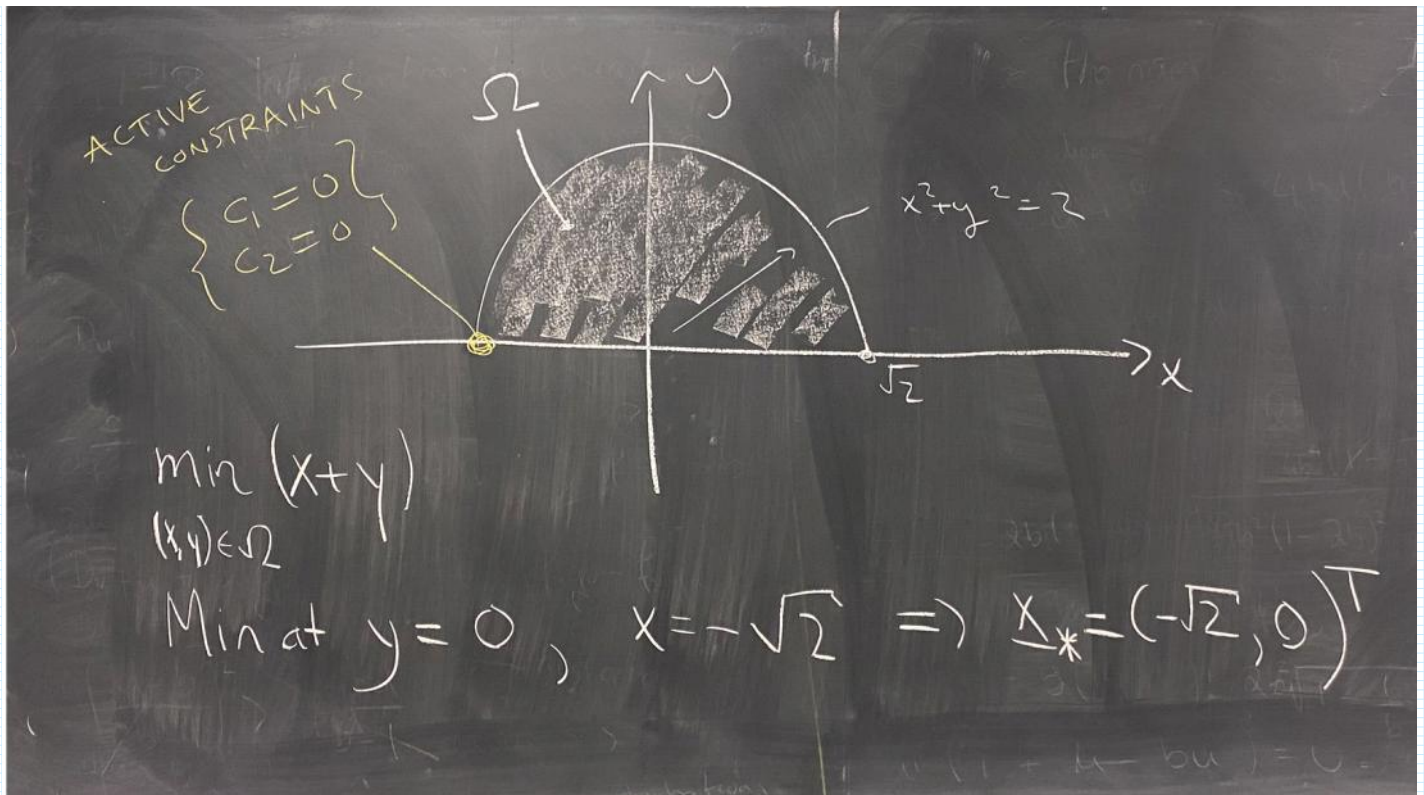 ACTIVE
CONSTRAINTS
{ C₁ = 0 }
{ C₂ = 0 }
Ω
y
x²+y²=2
√2
x
min (x+y)
(x,y)∈Ω
Min at y=0, x=-√2 => x_*=(-√2,0)^T